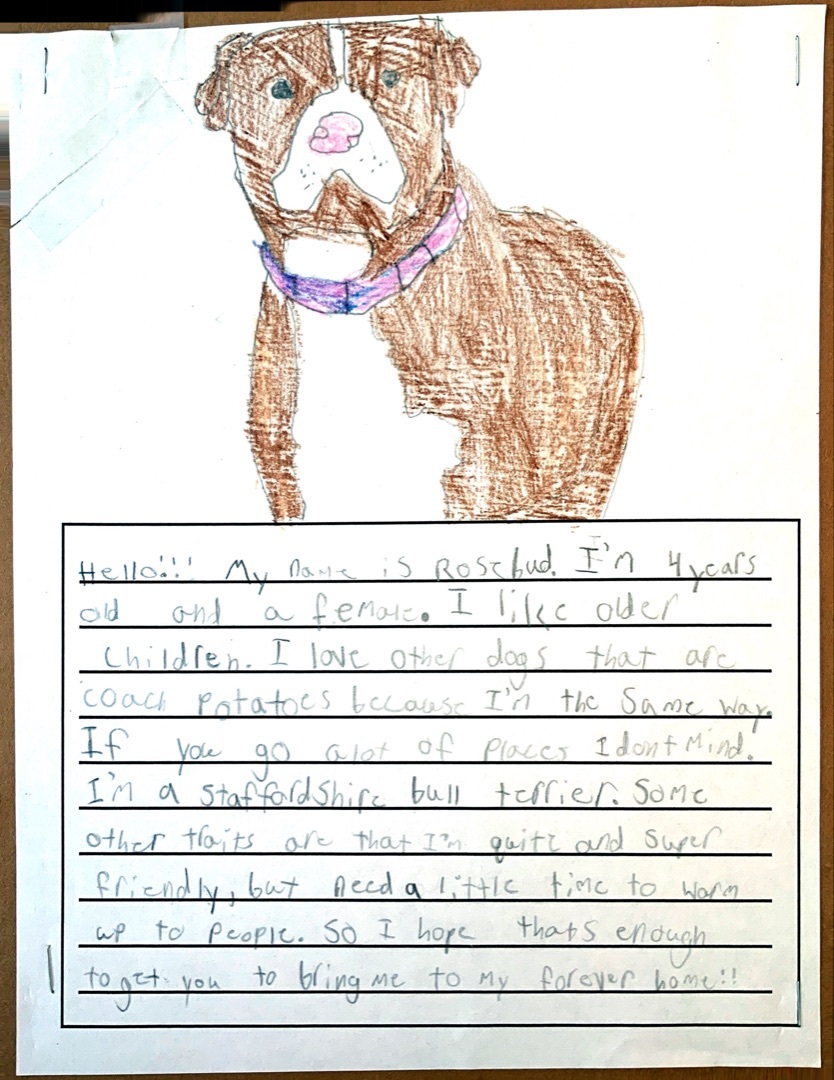 Hello!!! My name is Rosebud. I'm 4 years
old and a female. I like older
children. I love other dogs that are
coach potatoes because I'm the same way.
If you go alot of places I dont mind.
I'm a staffordshire bull terrier. Some
other traits are that I'm quite and super
friendly, but need a little time to warm
up to people. So I hope thats enough
to get you to bring me to my forever home!!